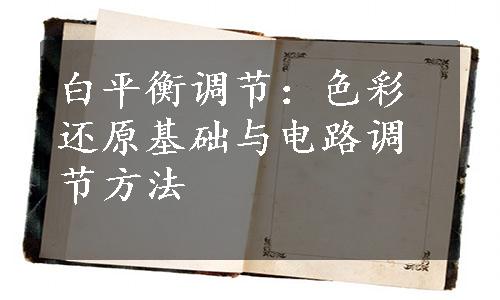 白平衡调节：色彩
还原基础与电路调
节方法